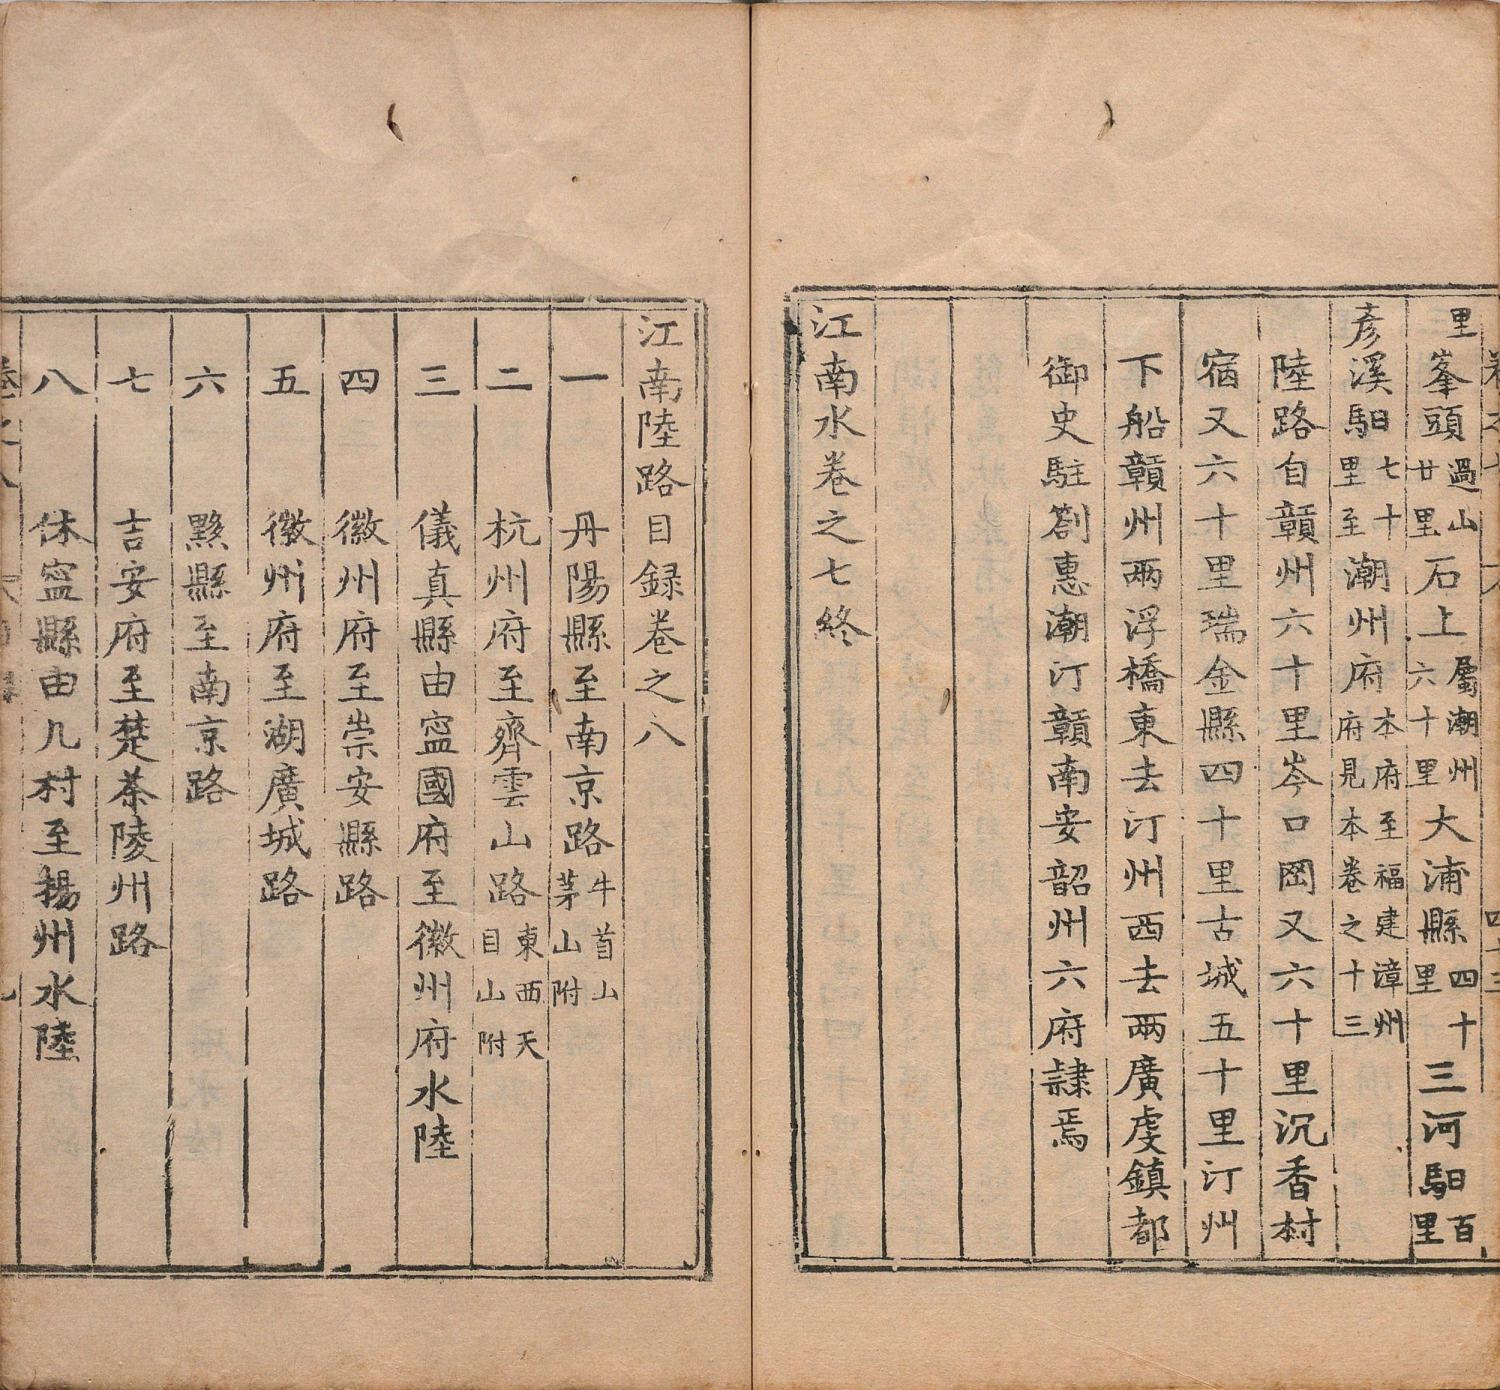 卷之七 四十三
里峯頭過山廿里石上屬潮州六十里大浦縣四十里三河馹百里
彥溪馹七十里至潮州府本府至福建漳州府見本卷之十三
陸路自贑州六十里岑口岡又六十里沉香村
宿又六十里瑞金縣四十里古城五十里汀州
下船贑州两浮橋東去汀州西去两廣虔鎮都
御史駐劄惠潮汀贑南安韶州六府隷焉
江南水卷之七終
江南陸路目録卷之八
一 丹陽縣至南京路牛首山茅山附
二 杭州府至齊雲山路東西天目山附
三 儀真縣由寍國府至徽州府水陸
四 徽州府至崇安縣路
五 徽州府至湖廣城路
六 黟縣至南京路
七 吉安府至楚茶陵州路
八 休寍縣由几村至揚州水陸